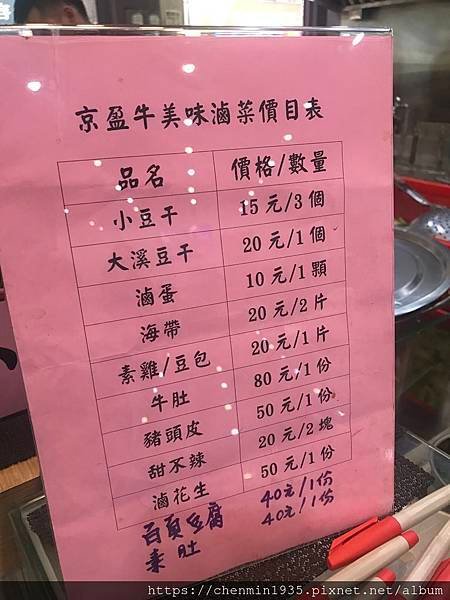 京盈牛美味滷菜價目表
品名 價格/數量
小豆干 15元/3個
大溪豆干 20元/1個
滷蛋 10元/1顆
海帶 20元/2片
素雞/豆包 20元/1片
牛肚 80元/1份
豬頭皮 50元/1份
甜不辣 20元/2塊
滷花生 50元/1份
百頁豆腐 40元/1份
素肚 40元/1份
https://chenmin1935.pixnet.net/album